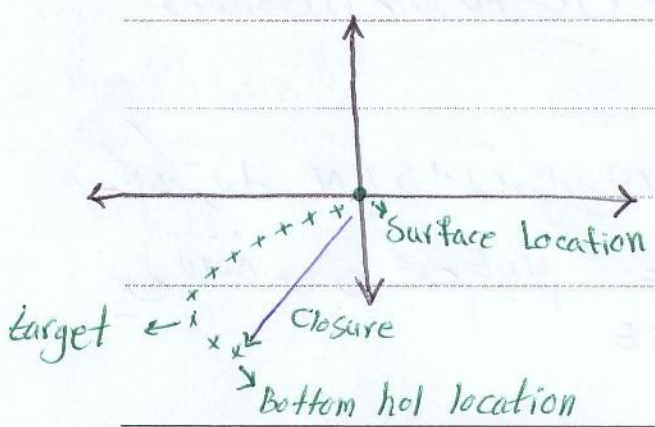 Surface Location
target
Closure
Bottom hol location